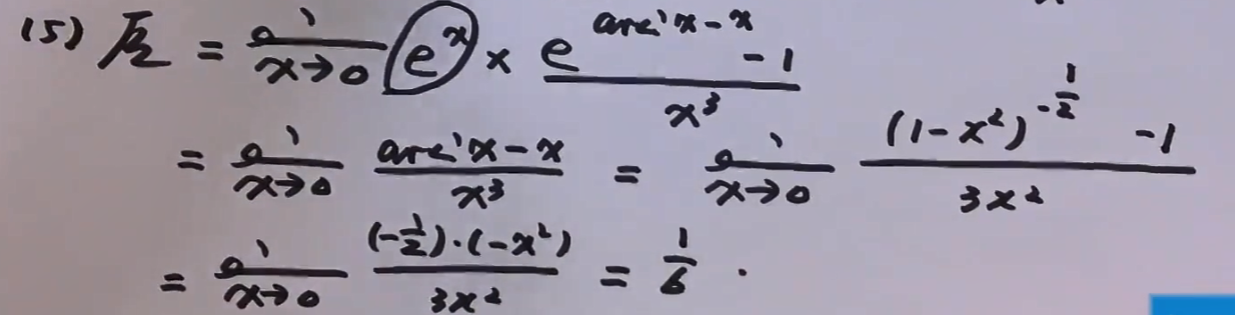 (5) 原 = lim x→0 e^x × (e^(arcsin x - x) - 1)/x^3
= lim x→0 (arcsin x - x)/x^3 = lim x→0 ((1-x^2)^(-1/2) - 1)/(3x^2)
= lim x→0 ((-1/2)·(-x^2))/(3x^2) = 1/6 .